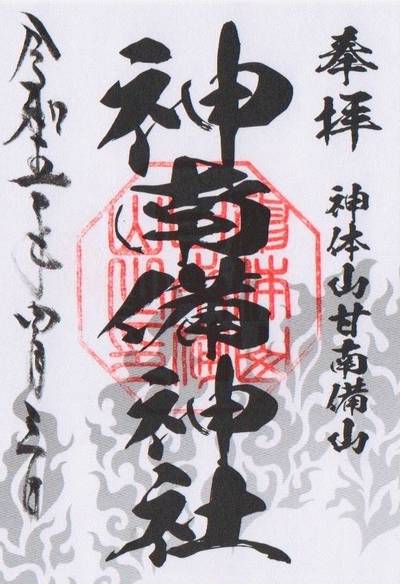 奉拝
神体山甘南備山
神南備神社
令和五年四月三日